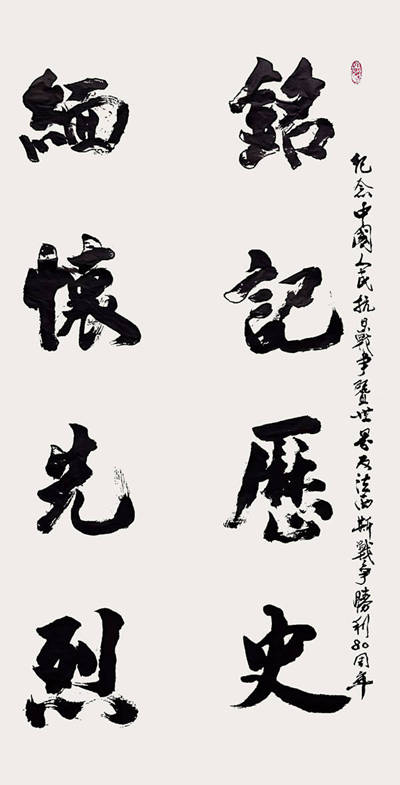 紀念中國人民抗日戰争暨世界反法西斯戰争勝利80周年
銘記歷史
緬懷先烈